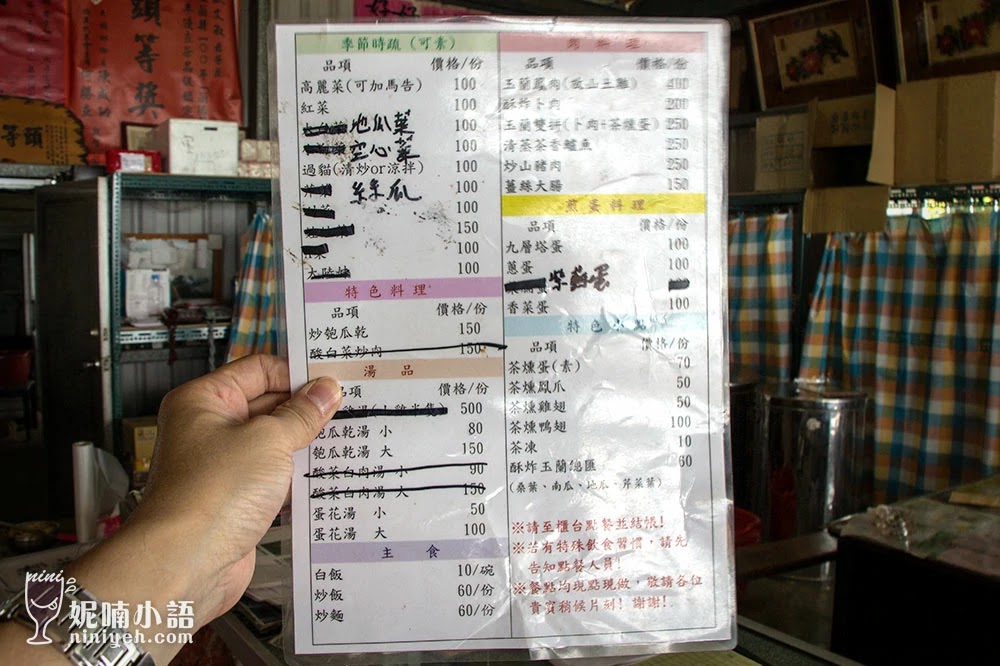 好好
頭等獎
等頭
季節時蔬(可素)
品項 價格/份
高麗菜(可加馬告) 100
紅菜 100
地瓜葉 100
空心菜 100
過貓(清炒or涼拌) 100
絲瓜 100
100
150
100
100
特色料理
品項 價格/份
炒匏瓜乾 150
酸白菜炒肉 150
湯品
品項 價格/份
500
匏瓜乾湯 小 80
匏瓜乾湯 大 150
酸菜白肉湯 小 90
酸菜白肉湯 大 150
蛋花湯 小 50
蛋花湯 大 100
主食
白飯 10/碗
炒飯 60/份
炒麵 60/份
肉料理
品項 價格/份
玉蘭鳳肉(放山土雞) 400
酥炸卜肉 200
玉蘭雙拼(卜肉+茶燻蛋) 250
清蒸茶香鱸魚 250
炒山豬肉 250
薑絲大腸 150
煎蛋料理
品項 價格/份
九層塔蛋 100
蔥蛋 100
紫蘇蛋
香菜蛋 100
特色小點
品項 價格/份
茶燻蛋(素) 70
茶燻鳳爪 50
茶燻雞翅 50
茶燻鴨翅 100
茶凍 10
酥炸玉蘭總匯 60
(桑葉、南瓜、地瓜、芹菜葉)
※請至櫃台點餐並結帳!
※若有特殊飲食習慣,請先
告知點餐人員!
※餐點均現點現做,敬請各位
貴賓稍候片刻!謝謝!
nini
妮喃小語
niniyeh.com